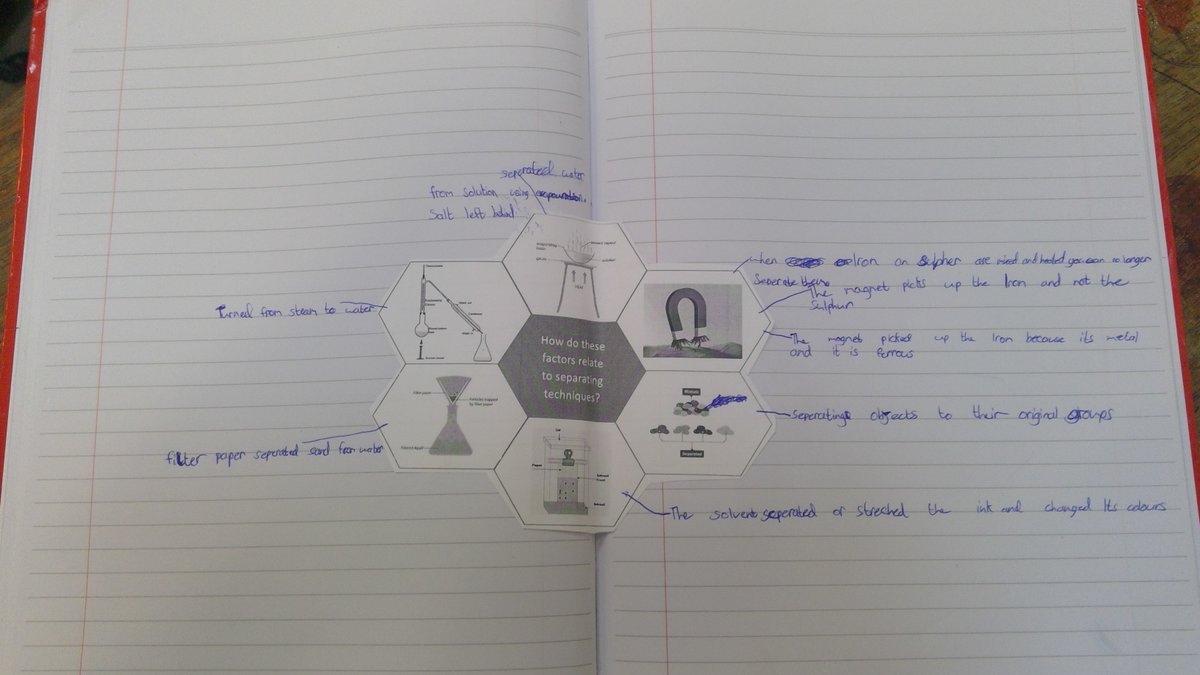 seperated water
from solution using
Salt left behind
Evaporating
HEAT
Turned from steam to water
filter paper seperated sand from water
Filter paper
Particles trapped
by filter paper
How do these
factors relate
to separating
techniques?
when Iron on Sulpher are mixed and heated you can no longer
Seperate them
The magnet picks up the Iron and not the
Sulphur
The magnet picked up the Iron because its metal
and it is ferrous
Mixture
Separated
Seperating objects to their original groups
Lid
Paper
Solvent
The solvent seperated or streched the ink and changed Its colours